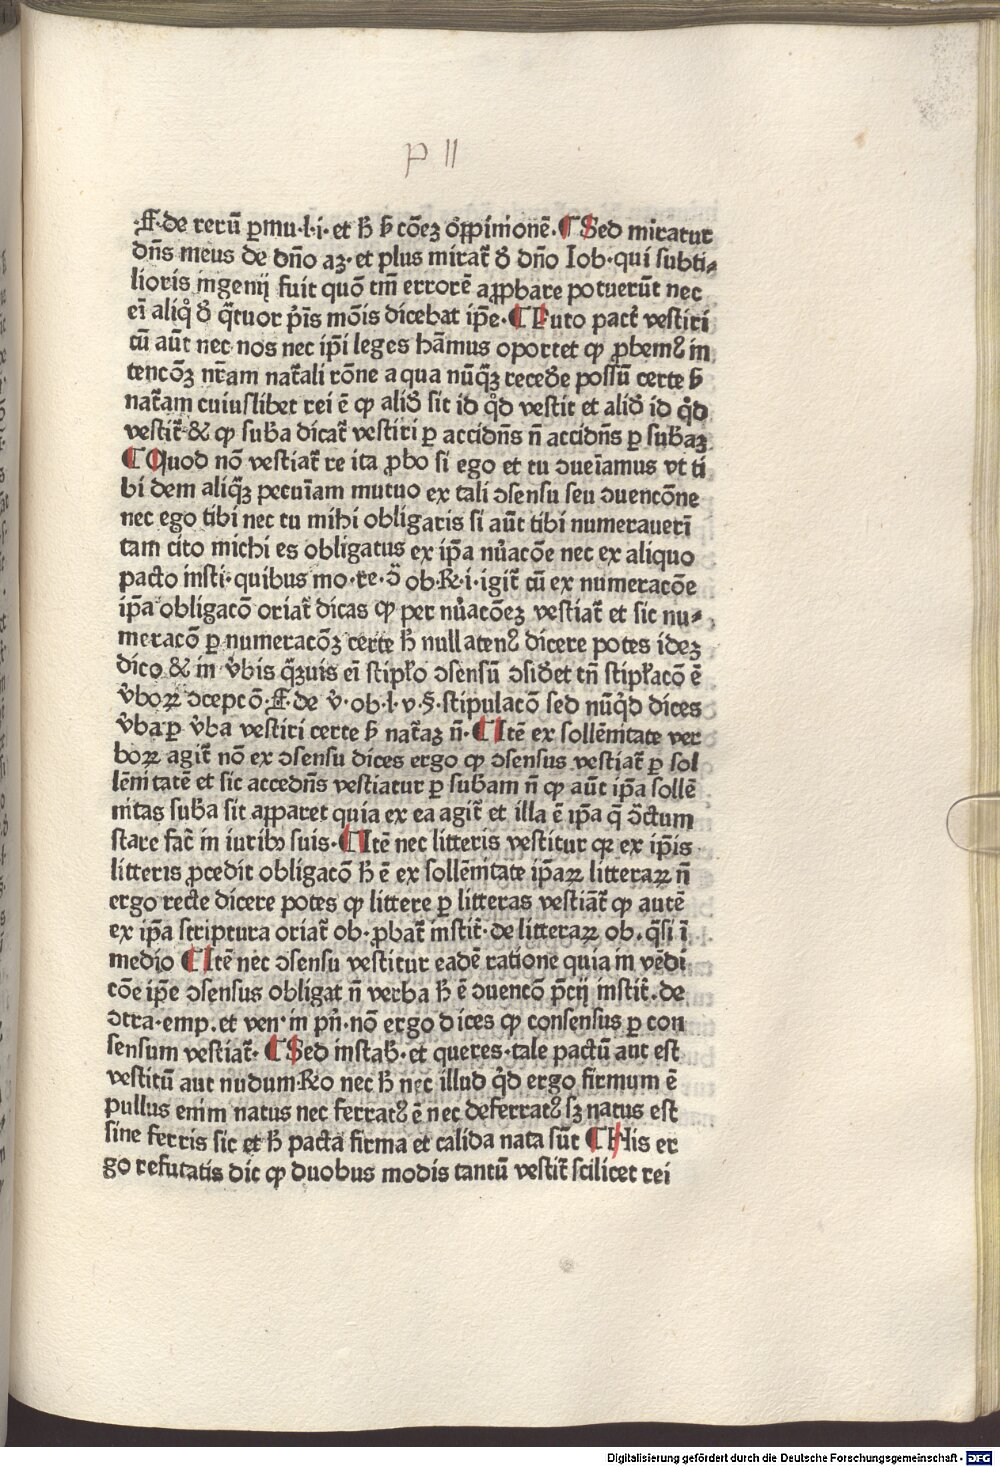 p II
.ff.de rerū ꝑmu.l.i. et ħ ẜ cōeꝫ oꝑpinionē. ¶ Sed miratur
dn̄s meus de dn̄o aꝫ. et plus mirat᷑ ð dn̄o Iob. qui subti⸗
lioris ingenij fuit quō tm̄ errorē aꝓpbare potuerūt nec
eī aliq̊ ð q̄tuor p̄is mōis dicebat ip̄e. ¶ Puto pact᷑ vestiri
cū aūt nec nos nec ip̄i leges ham̄us oportet ꝙ ꝓbemꝰ in
tencōꝫ nr̄am nat᷑ali rōne a qua nūq̄ꝫ recede᷑ possū certe ẜ
nat᷑am cuiuslibet rei ē ꝙ aliđ sit id q̊d vestit et aliđ id q̊d
vestit᷑ & ꝙ suba dicat᷑ vestiri ꝑ accidn̄s n̄ accidn̄s ꝑ subaꝫ
¶ Quod nō vestiat᷑ re ita ꝓbo si ego et tu ↄueīamus vt ti
bi dem aliq̄ꝫ pecuīam mutuo ex tali ↄsensu seu ↄuencōne
nec ego tibi nec tu mihi obligaris si aūt tibi numeraverī
tam cito michi es obligatus ex ip̄a nu᷑acōe nec ex aliquo
pacto insti. quibus mo. re. ↄ̄ ob. R. i. igit᷑ cū ex numeracōe
ip̄a obligacō oriat᷑ dicas ꝙ per nu᷑acōeꝫ vestiat᷑ et sic nu⸗
meracō ꝑ numeracōꝫ certe ħ nullatenꝰ dicere potes ideꝫ
dico & in v᷑bis q̄ꝫuis eī stipl̄o ↄsensū ↄsidet tn̄ stipl̄acō ē
v᷑boꝝ ↄcepcō. ff. de v᷑. ob. l. v. §. stipulacō sed nūq̊d dices
v᷑ba ꝑ v᷑ba vestiri certe ẜ nat᷑aꝫ n̄. ¶ Itē ex sollēnitate ver
boꝝ agit᷑ nō ex ↄsensu dices ergo ꝙ ↄsensus vestiat᷑ ꝑ sol
lēnitatē et sic accedn̄s vestiatur ꝑ subam n̄ ꝙ aūt ip̄a sollē
nitas suba sit apparet quia ex ea agit᷑ et illa ē ip̄a q̄ ↄ̄ctum
stare fac᷑ in iuribꝫ suis. ¶ Itē nec litteris vestitur qꝛ ex ip̄is
litteris ꝓcedit obligacō ħ ē ex sollēnitate ip̄aꝝ litteraꝝ n̄
ergo recte dicere potes ꝙ littere ꝑ litteras vestiāt᷑ ꝙ autē
ex ip̄a scriptura oriat᷑ ob. ꝓbat᷑ instit᷑. de litteraꝝ ob. q̄si ī
medio ¶ Itē nec ↄsensu vestitur eadē ratione quia in vēdi
cōe ip̄e ↄsensus obligat n̄ verba ħ ē ↄuencō p̄cij instit᷑. de
ↄtra. emp. et ven᷑ in pn̄. nō ergo dices ꝙ consensus ꝑ con
sensum vestiat᷑. ¶ Sed instab᷑. et queres. tale pactū aut est
vestitū aut nudum. Ro nec ħ nec illud q̊d ergo firmum ē
pullus enim natus nec ferratꝰ ē nec deferratꝰ sꝫ natus est
sine ferris sic et ħ pacta firma et calida nata sūt ¶ His er
go refutatis dic ꝙ duobus modis tantū vestit᷑ scilicet rei
Digitalisierung gefördert durch die Deutsche Forschungsgemeinschaft - DFG